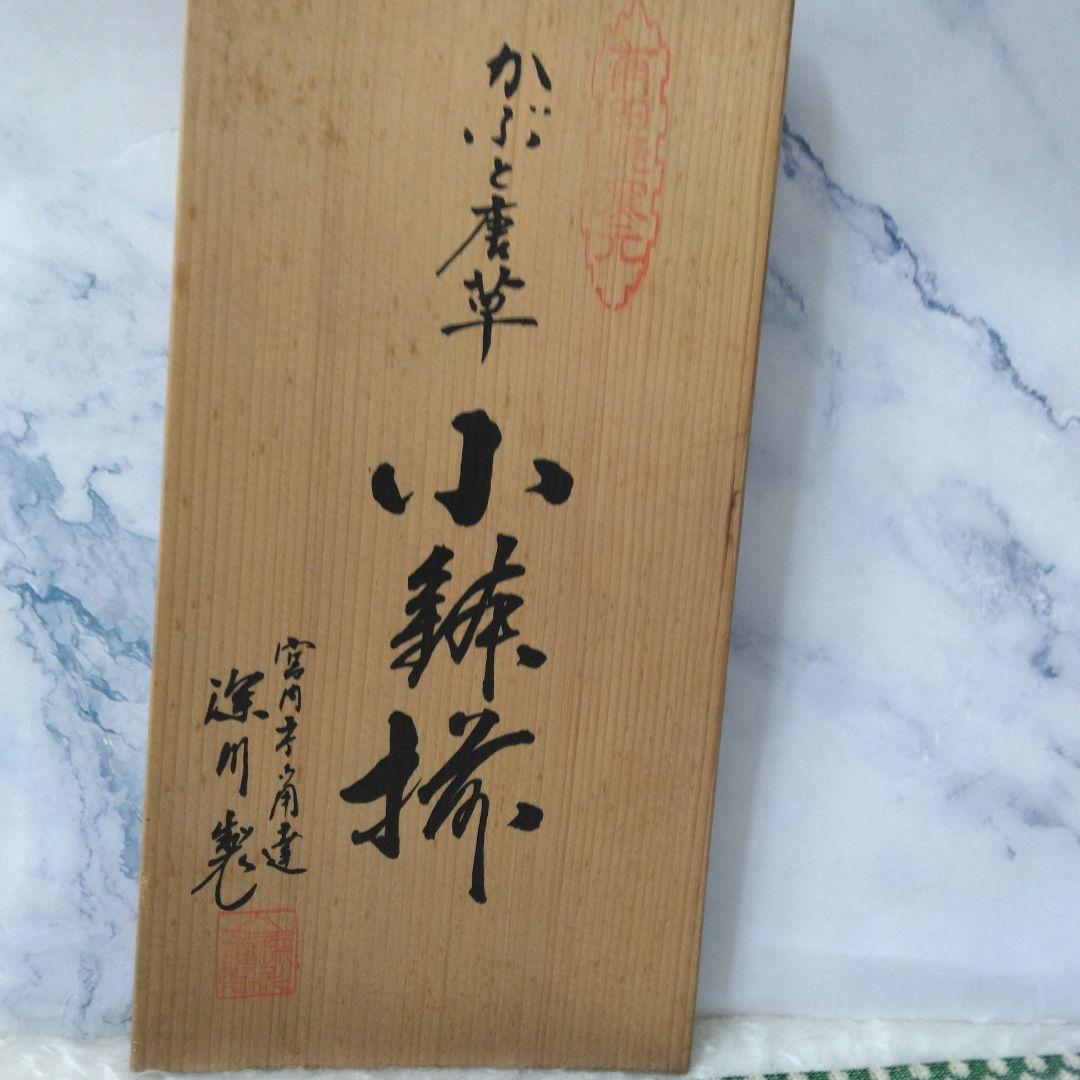 かぶと唐草
小鉢揃
宮内庁御用達
深川製